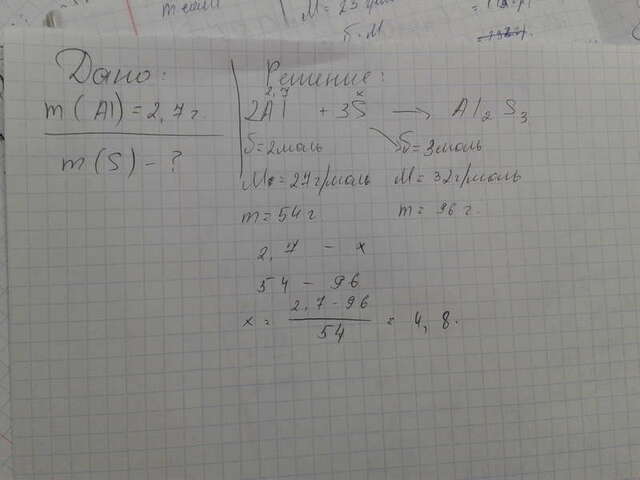 Дано:
m(Al) = 2,7 г.
m(S) - ?
Решение:
2,7 x
2Al + 3S → Al2S3
б=2моль б=3моль
M=27г/моль M=32г/моль
m=54г m=96г.
2,7 - x
54 - 96
x = 2,7-96 / 54 = 4,8.